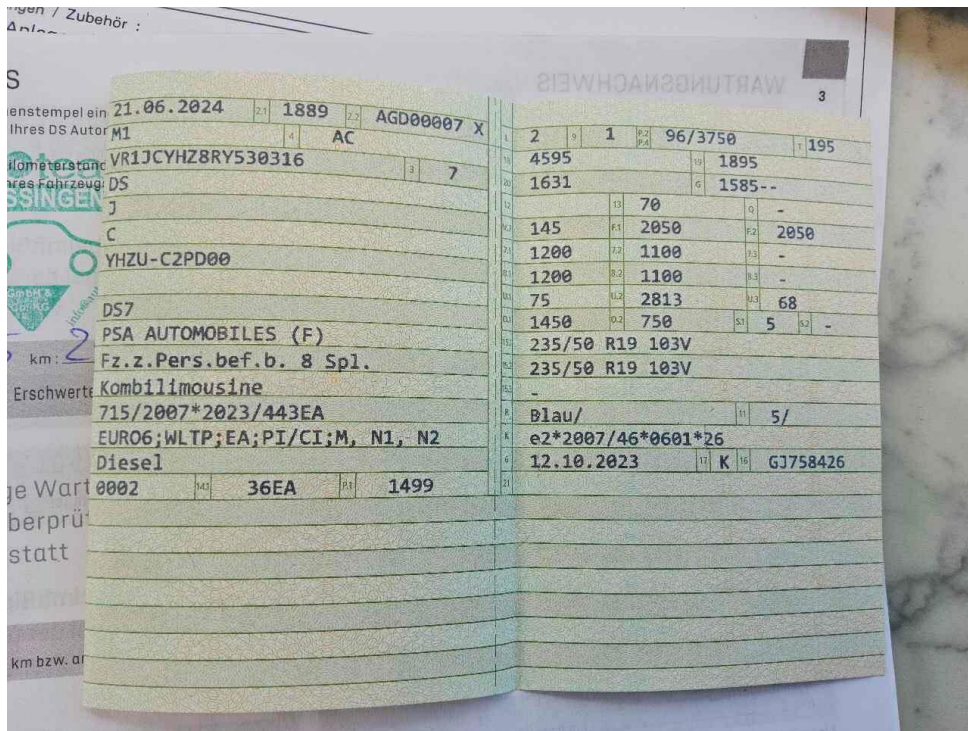 ngen / Zubehör :
S
enstempel ein
Ihres DS Autor
ilometerstand
res Fahrzeug
SSINGEN
GmbH &
KG
km : 2
Erschwerte
ge Wart
berprüf
statt
km bzw. ar
WARTUNGSNACHWEIS
3
21.06.2024 2.1 1889 2.2 AGD00007 X
M1 4 AC
VR1JCYHZ8RY530316 3 7
DS
J
C
YHZU-C2PD00
DS7
PSA AUTOMOBILES (F)
Fz.z.Pers.bef.b. 8 Spl.
Kombilimousine
715/2007*2023/443EA
EURO6;WLTP;EA;PI/CI;M, N1, N2
Diesel
0002 14.1 36EA P.1 1499
L 2 9 1 P.2 P.4 96/3750 T 195
18 4595 19 1895
20 1631 G 1585--
12 13 70 Q -
V.7 145 F.1 2050 F.2 2050
7.1 1200 7.2 1100 7.3 -
8.1 1200 8.2 1100 8.3 -
U.1 75 U.2 2813 U.3 68
O.1 1450 O.2 750 S.1 5 S.2 -
15.1 235/50 R19 103V
15.2 235/50 R19 103V
15.3 -
R Blau/ 11 5/
K e2*2007/46*0601*26
6 12.10.2023 17 K 16 GJ758426
21